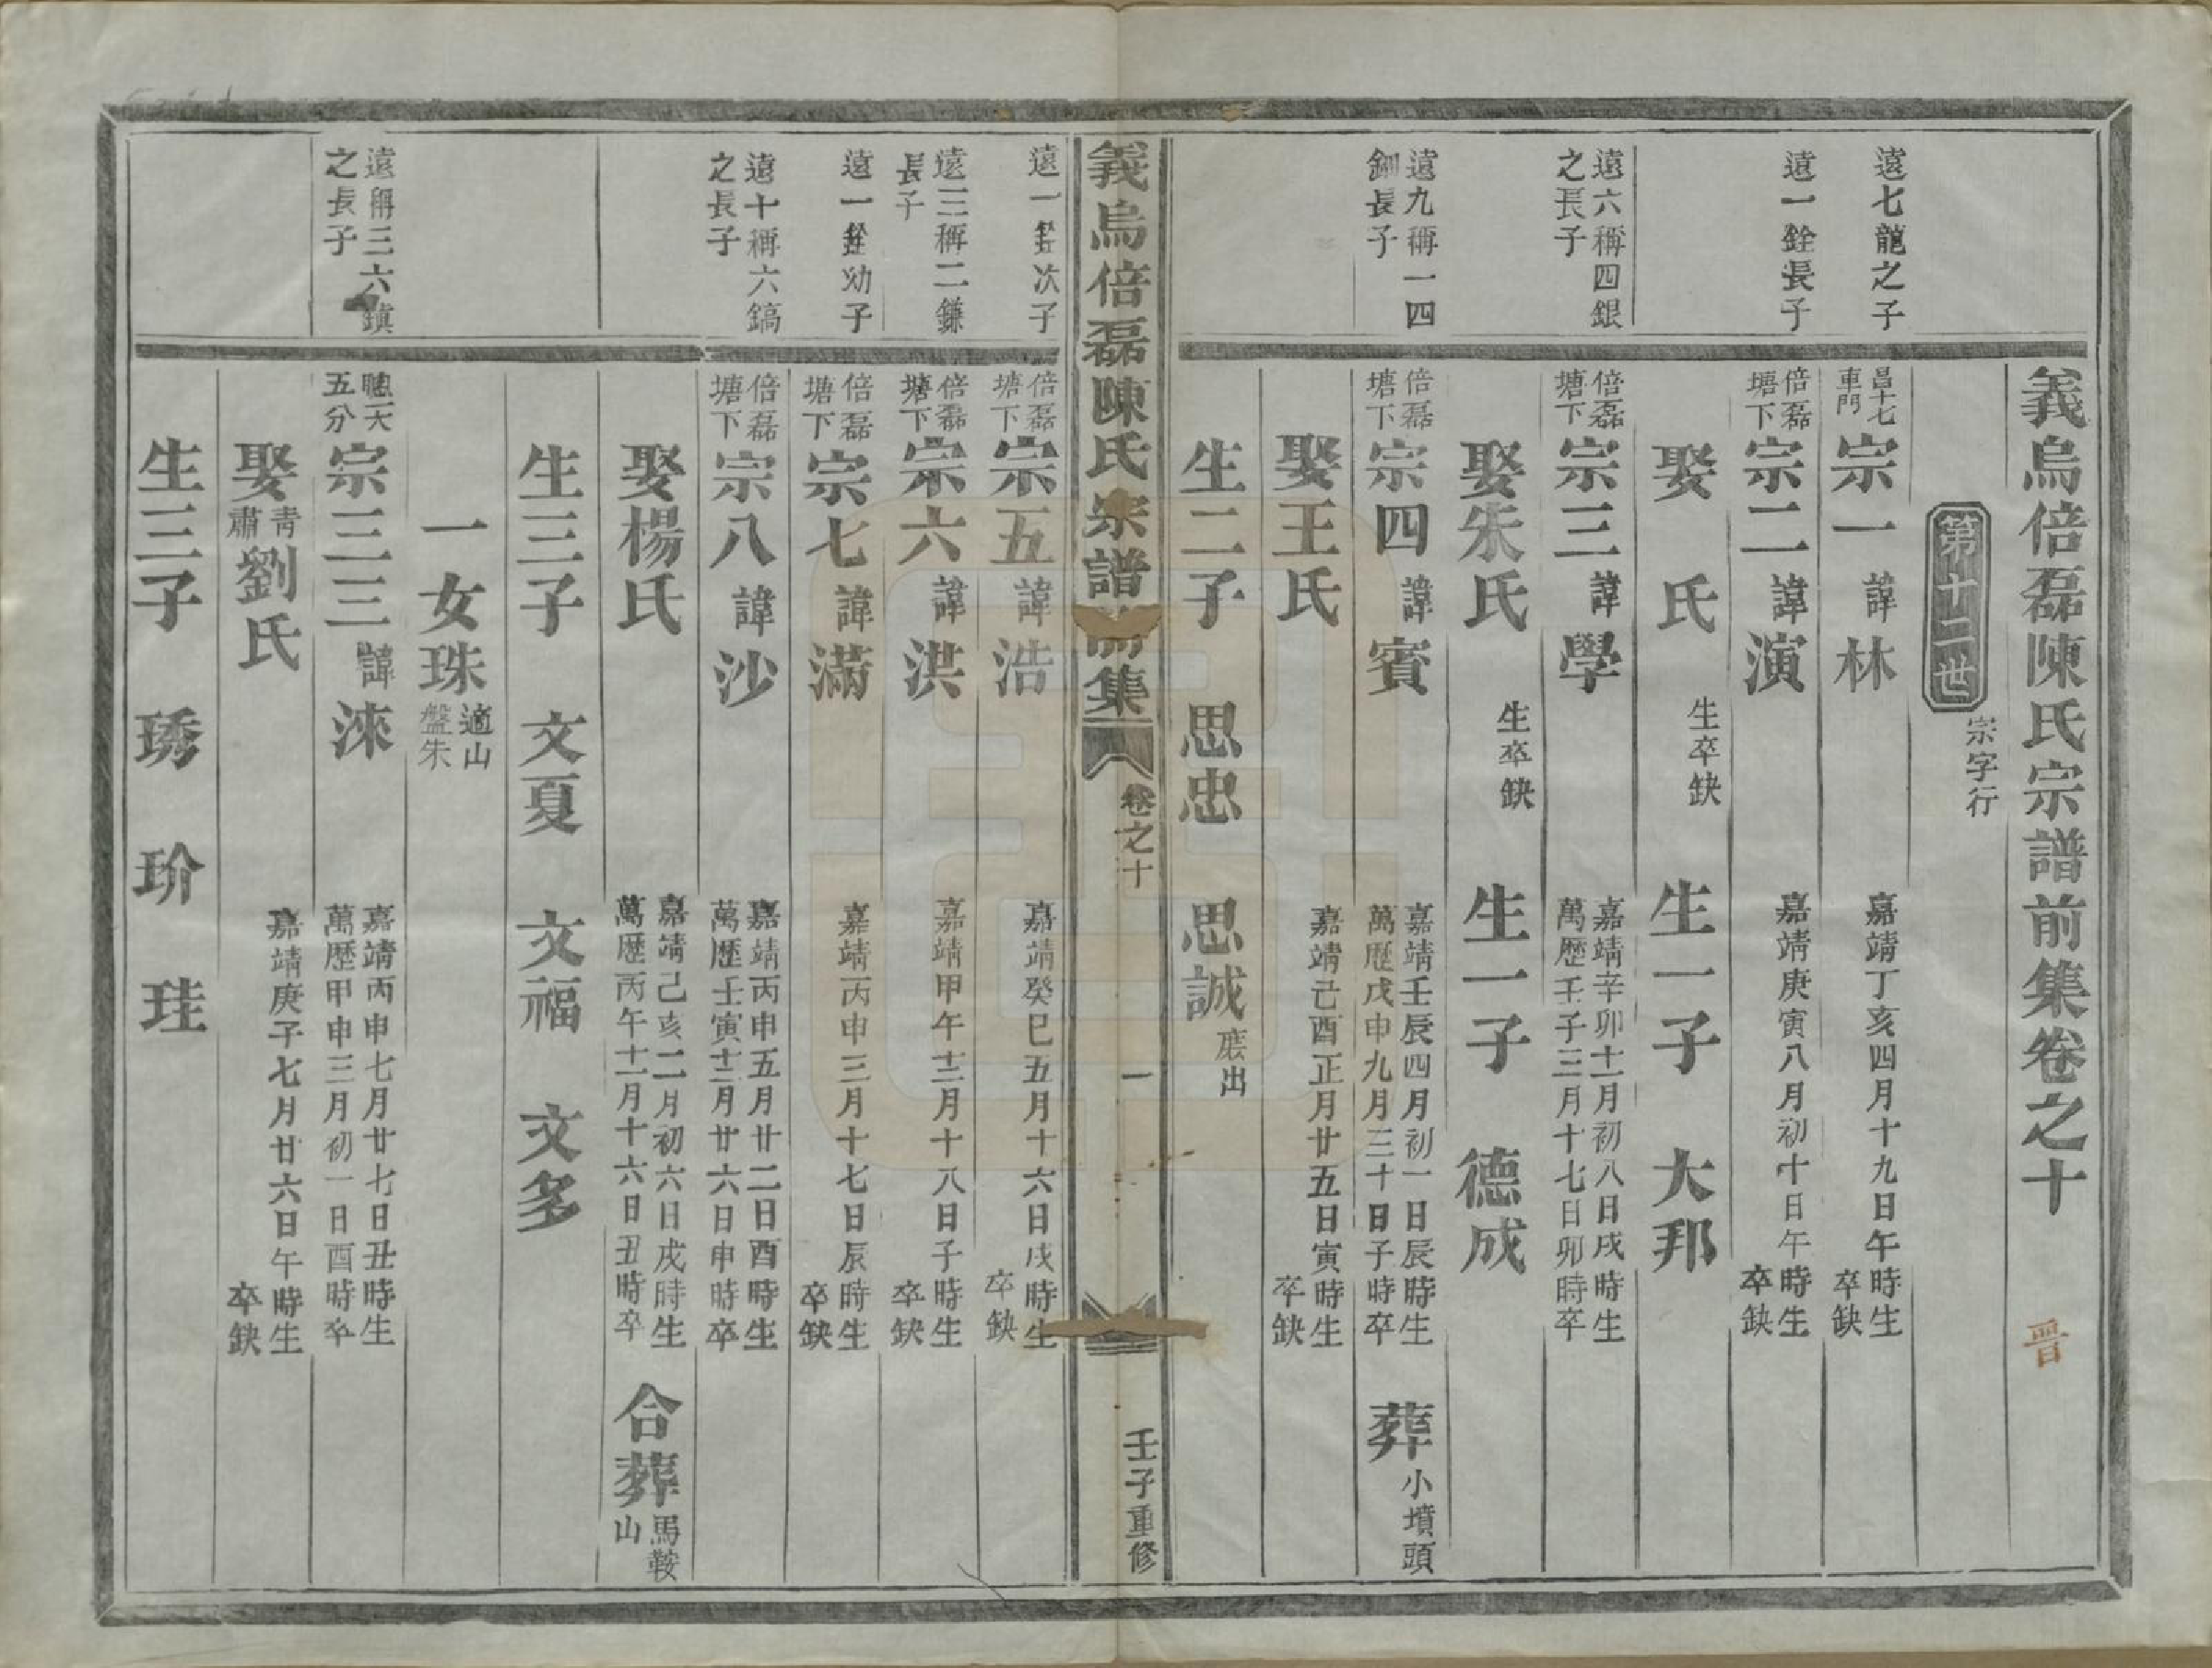 義烏倍磊陳氏宗譜前集卷之十 晋
第十二世 宗字行
遠七龍之子
昌十七車門 宗一 諱林 嘉靖丁亥四月十九日午時生 卒缺
遠一銓長子
倍磊塘下 宗二 諱演 嘉靖庚寅八月初十日午時生 卒缺
娶 氏 生卒缺 生一子 大邦
遠六稱四銀之長子
倍磊塘下 宗三 諱學 嘉靖辛卯十一月初八日戌時生 萬歷壬子三月十七日卯時卒
娶朱氏 生卒缺 生一子 德成
遠九稱一四鈿長子
倍磊塘下 宗四 諱賓 嘉靖壬辰四月初一日辰時生 萬歷戊申九月三十日子時卒 葬小墳頭
娶王氏 嘉靖己酉正月廿五日寅時生 卒缺
生二子 思忠 思誠 庶出
義烏倍磊陳氏宗譜前集 卷之十 一 壬子重修
遠一銓次子
倍磊塘下 宗五 諱浩 嘉靖癸巳五月十六日戌時生 卒缺
遠三稱二鎌長子
倍磊塘下 宗六 諱洪 嘉靖甲午十二月十八日子時生 卒缺
遠一銓幼子
倍磊塘下 宗七 諱滿 嘉靖丙申三月十七日辰時生 卒缺
遠十稱六鎬之長子
倍磊塘下 宗八 諱沙 嘉靖丙申五月廿二日酉時生 萬歷壬寅十二月廿六日申時卒
娶楊氏 嘉靖己亥二月初六日戌時生 萬歷丙午十一月十六日丑時卒 合葬馬鞍山
生三子 文夏 文福 文多
一女珠 適山盤朱
遠稱三六鎮之長子
聰一大五分 宗三三 諱淶 嘉靖丙申七月廿七日丑時生 萬歷甲申三月初一日酉時卒
娶青肅劉氏 嘉靖庚子七月廿六日午時生 卒缺
生三子 琇 玠 珪